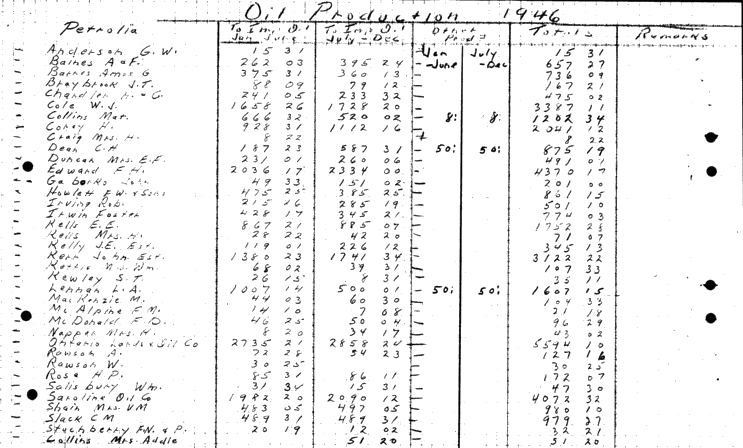 Oil Production 1946
Petrolia To Imp. Oil Jan June To Imp. Oil July - Dec Other Prods Totals Remarks
Jan - June July - Dec
Anderson G. W. 15 31 15 31
Baines A & F. 262 03 395 24 657 27
Barnes Amos G 375 31 360 13 736 09
Braybrook J. T. 88 09 79 12 167 21
Chandler & G. 241 05 233 32 475 02
Cole W. J. 1658 26 1728 20 3387 11
Collins Mat. 666 32 520 02 8: 8: 1202 34
Corey H. 928 31 1112 16 2041 12
Craig Mrs. H. 8 22 8 22
Dean C. H 187 23 587 31 50: 50: 875 19
Duncan Mrs. E. F. 231 01 260 06 491 07
Edward F. H. 2036 17 2334 00 4370 17
John 49 33 151 02 201 00
Howlett F. W. & Sons 475 25 385 25 861 15
Irving Rob. 215 16 285 19 501 10
Irwin Foster 428 17 345 21 774 03
Kells E. E. 867 21 885 07 1752 28
Kells Mrs. H. 28 22 42 20 71 07
Kelly J. E. Est. 119 01 226 12 345 13
Kerr John Est. 1380 23 1741 34 3122 22
Mrs. Wm. 68 02 39 31 107 33
Kewley S. T. 26 15 8 31 35 11
Lennan L. A. 1007 14 500 01 50: 50: 1607 15
MacKenzie M. 44 03 60 30 104 33
McAlpine F M. 14 10 7 08 21 18
McDonald F. D. 46 25 50 04 96 29
Napper Mrs. H. 8 20 34 17 43 02
Ontario Lands & Oil Co 2735 21 2858 24 5594 10
Rawson A. 72 28 54 23 127 16
Rawson W. 30 25 30 25
Rose H P. 85 31 86 11 172 07
Salisbury Wm. 31 34 15 31 47 30
Saroline Oil Co 1982 20 2090 12 4072 32
Shain Mrs. V M 483 05 497 05 980 10
Slack C M 489 31 489 31 979 27
Stuchberry F. N. & P. 20 19 12 02 32 21
Collins Mrs. Addie 51 20 51 20